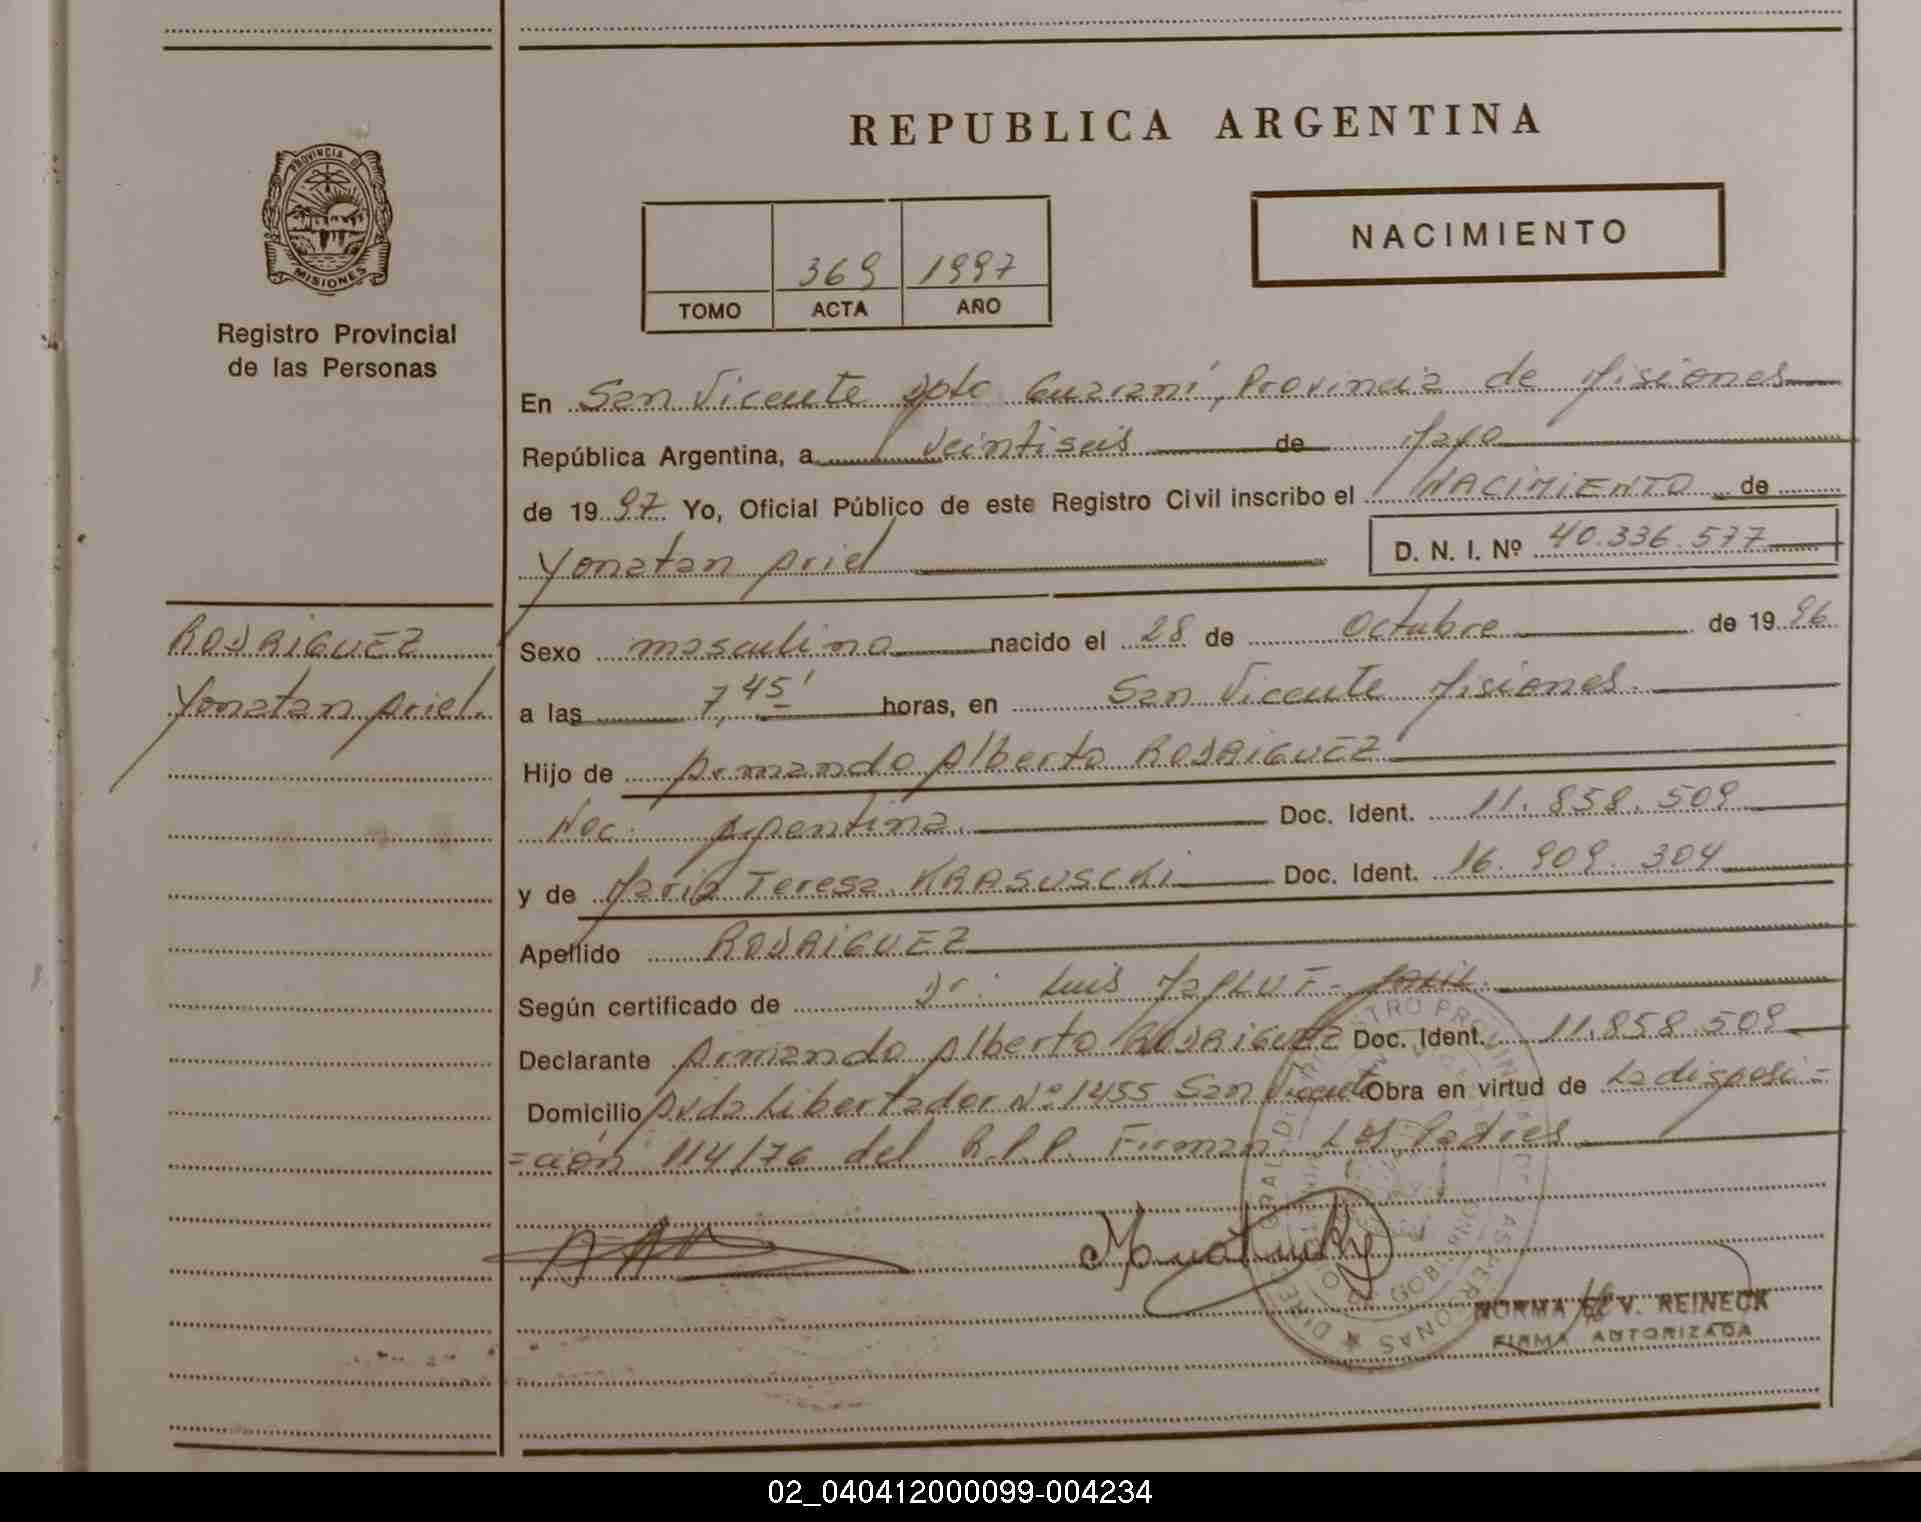 PROVINCIA DE
MISIONES
Registro Provincial
de las Personas
REPUBLICA ARGENTINA
NACIMIENTO
369 1997
TOMO ACTA AÑO
En San Vicente Dpto Guaraní, Provincia de Misiones
República Argentina, a veintiseis de Mayo
de 1997 Yo, Oficial Público de este Registro Civil inscribo el NACIMIENTO de
Yonatan Ariel D. N. I. Nº 40.336.577
RODRIGUEZ
Yonatan Ariel.
Sexo masculino nacido el 28 de Octubre de 1996
a las 7,45' horas, en San Vicente Misiones.
Hijo de Armando Alberto RODRIGUEZ
Nac. Argentina. Doc. Ident. 11.858.509
y de María Teresa KRASUSCKI Doc. Ident. 16.909.304
Apellido RODRIGUEZ
Según certificado de Dr. Luis
Declarante Armando Alberto RODRIGUEZ Doc. Ident. 11.858.509
Domicilio Avda Libertador Nº 1455 San Vicente Obra en virtud de La disposi=
=ción 114/76 del R.P.P. Firman Los Padres
NORMA V. REINECK
FIRMA AUTORIZADA
02_040412000099-004234